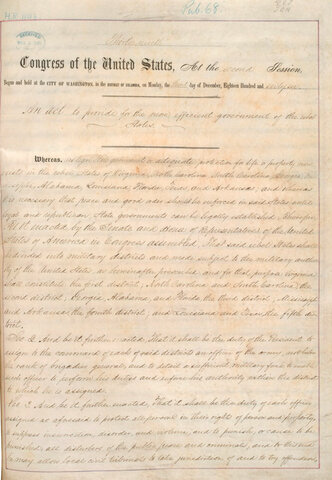 H.R. 1143
Pub. 68.
Thirty-ninth
Congress of the United States, At the second Session,
Begun and held at the CITY OF WASHINGTON, in the DISTRICT OF COLUMBIA, on Monday, the third day of December, Eighteen Hundred and sixty-six
An Act to provide for the more efficient government of the rebel
States.
Whereas, no legal State governments or adequate protection for life or property now
exists in the rebel States of Virginia, North Carolina, South Carolina, Georgia, Mis-
sissippi, Alabama, Louisiana, Florida, Texas and Arkansas, and whereas
it is necessary that peace and good order should be enforced in said States until
loyal and republican State governments can be legally established: Therefore,
Be it enacted by the Senate and House of Representatives of the United
States of America in Congress assembled, That said rebel States shall
be divided into military districts and made subject to the military author-
ity of the United States, as hereinafter prescribed, and for that purpose Virginia
shall constitute the first district; North Carolina and South Carolina, the
second district; Georgia, Alabama, and Florida the third district; Mississippi
and Arkansas the fourth district; and Louisiana and Texas the fifth dis-
trict.
Sec 2. And be it further enacted, That it shall be the duty of the President to
assign to the command of each of said districts an officer of the army, not below
the rank of brigadier general, and to detail a sufficient military force to enable
such officer to perform his duties and enforce his authority within the district
to which he is assigned.
Sec 3. And be it further enacted, That it shall be the duty of each officer
assigned as aforesaid to protect all persons in their rights of person and property,
to suppress insurrection, disorder, and violence, and to punish, or cause to be
punished, all disturbers of the public peace and criminals, and to this end
he may allow local civil tribunals to take jurisdiction of and to try offenders,